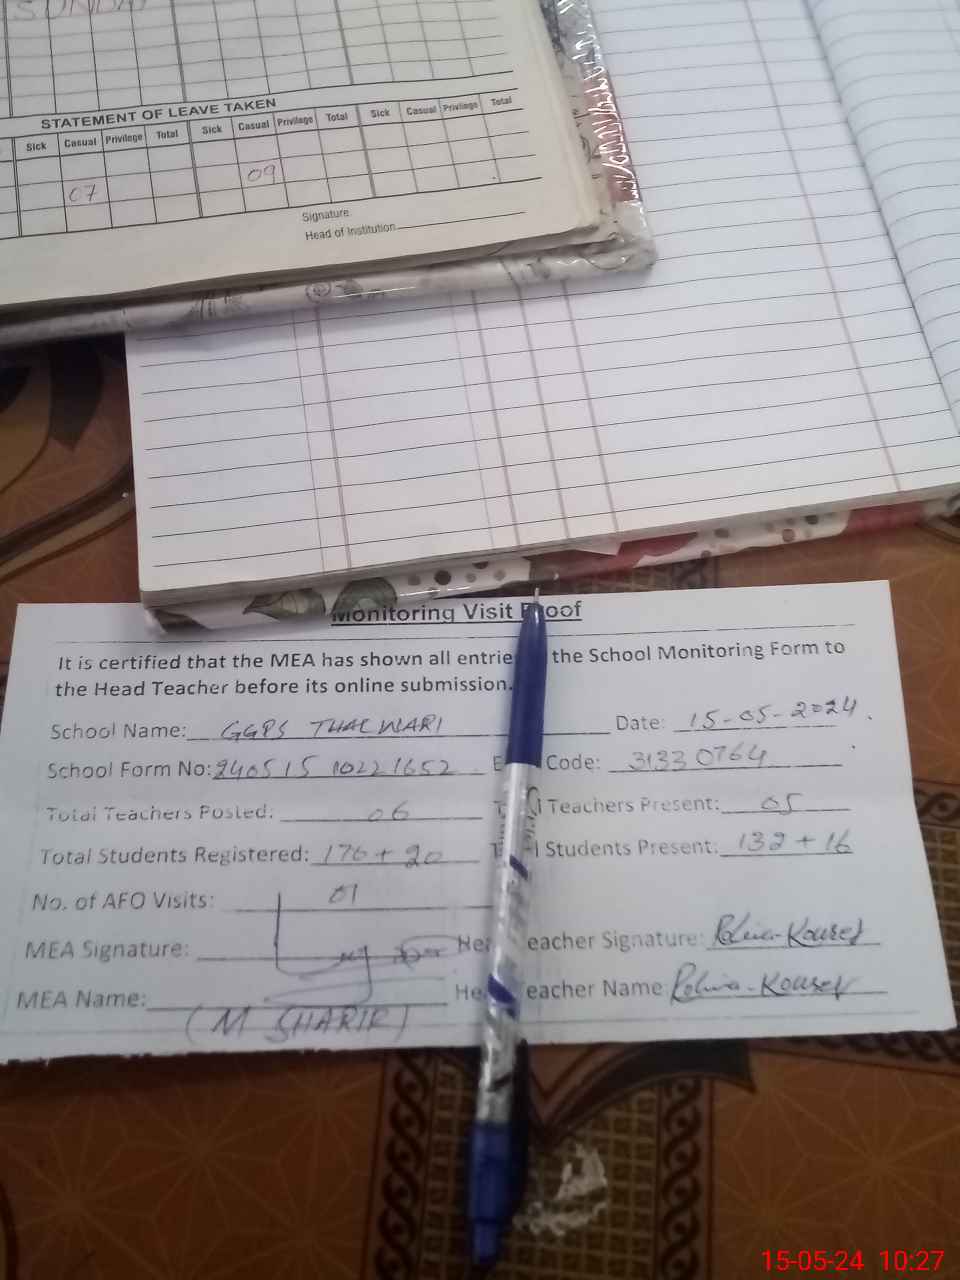 SUNDAY
STATEMENT OF LEAVE TAKEN
Sick Casual Privilege Total Sick Casual Privilege Total Sick Casual Privilege Total
07 09
Signature
Head of Institution
Monitoring Visit Proof
It is certified that the MEA has shown all entrie the School Monitoring Form to
the Head Teacher before its online submission.
School Name: GGPS THALWARI Date: 15-05-2024.
School Form No: 240515 10221652 E Code: 31330764
Total Teachers Posted: 06 T l Teachers Present: 05
Total Students Registered: 176 + 20 T l Students Present: 132 + 16
No. of AFO Visits: 01
MEA Signature: He eacher Signature:
MEA Name: He eacher Name: Kouser
(M SHARIF)
15-05-24 10:27